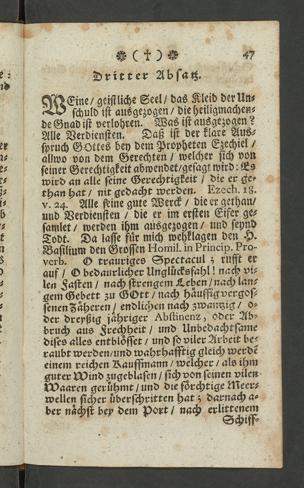 ❁ ( † ) ❁ 47
Dritter Absatz.
WEine / geistliche Seel / das Kleid der Un-
schuld ist außgezogen / die heiligmachen-
de Gnad ist verlohren. Was ist außgezogen?
Alle Verdiensten. Daß ist der klare Aus-
spruch GOttes bey dem Propheten Ezechiel /
allwo von dem Gerechten / welcher sich von
seiner Gerechtigkeit abwendet / gesagt wird: Es
wird an alle seine Gerechtigkeit / die er ge-
than hat / nit gedacht werden. Ezech. 18.
v. 24. Alle seine gute Werck / die er gethan /
und Verdiensten / die er im ersten Eifer ge-
samlet / werden ihm außgezogen / und seynd
Todt. Da lasse für mich wehklagen den H.
Basilium den Grossen Homil. in Princip. Pro-
verb. O trauriges Spectacul; rufft er
auf / O bedaurlicher Unglücksfahl! nach vi-
len Fasten / nach strengem Leben / nach lan-
gem Gebett zu GOtt / nach häuffig vergos-
senen Zäheren / endlichen nach zwantzig / o-
der dreyßig jähriger Abstinenz, oder Ab-
bruch aus Frechheit / und Unbedachtsame
dises alles entblösset / und so viler Arbeit be-
raubt werden / und wahrhafftig gleich werdē
einem reichen Kauffmann / welcher / als ihm
guter Wind zugeblasen / sich von seinen vilen
Waaren gerühmt / und die förchtige Meer-
wellen sicher überschritten hat; darnach a-
ber nächst bey dem Port / nach erlittenem
Schiff-